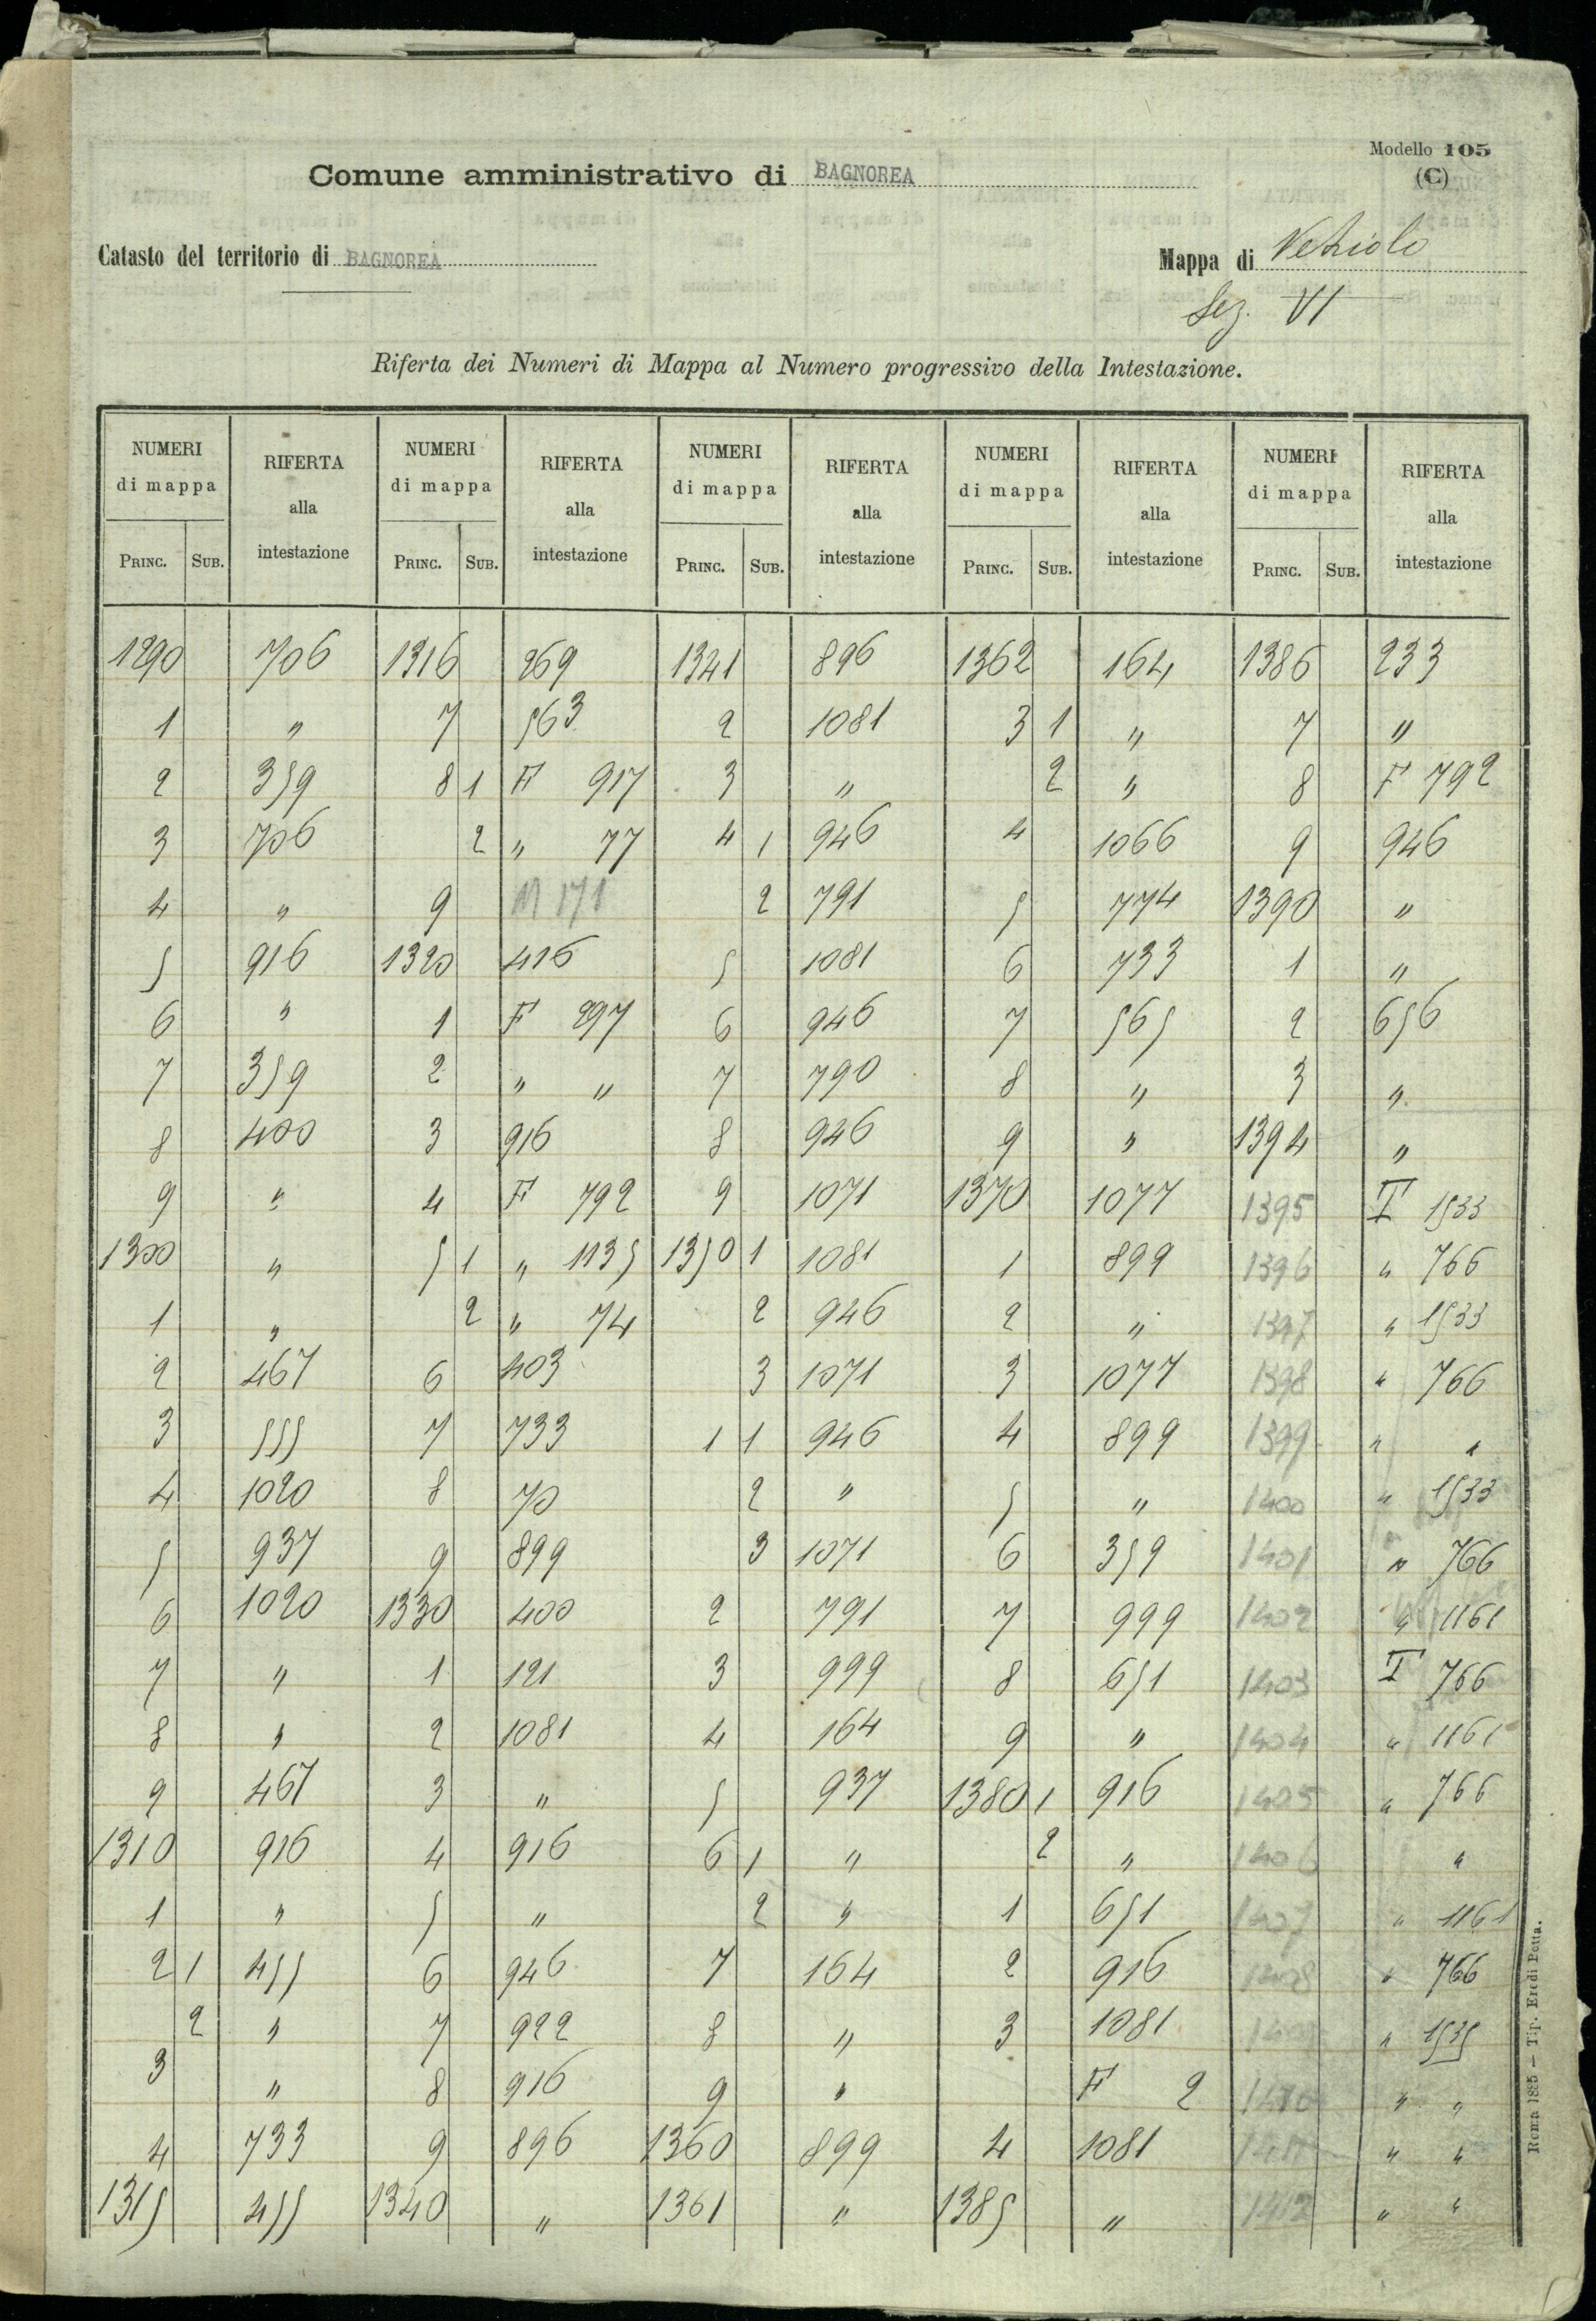 Modello 105
(C)
Comune amministrativo di BAGNOREA
Catasto del territorio di BAGNOREA
Mappa di Vetriolo
Sez. VI
Riferta dei Numeri di Mappa al Numero progressivo della Intestazione.
NUMERI di mappa RIFERTA alla intestazione NUMERI di mappa RIFERTA alla intestazione NUMERI di mappa RIFERTA alla intestazione NUMERI di mappa RIFERTA alla intestazione NUMERI di mappa RIFERTA alla intestazione
PRINC. SUB. PRINC. SUB. PRINC. SUB. PRINC. SUB. PRINC. SUB.
1290 706 1316 269 1341 896 1362 164 1386 233
1 " 7 563 2 1081 3 1 " 7 "
2 359 8 1 F 917 3 " 2 " 8 F 792
3 706 2 " 77 4 1 946 4 1066 9 946
4 " 9 M 171 2 791 5 774 1390 "
5 916 1320 416 5 1081 6 733 1 "
6 " 1 F 297 6 946 7 565 2 656
7 359 2 " " 7 790 8 " 3 "
8 400 3 916 8 946 9 " 1394 "
9 " 4 F 792 9 1071 1370 1077 1395 T 1533
1300 " 5 1 " 1135 1350 1 1081 1 899 1396 " 766
1 " 2 " 74 2 946 2 " 1397 " 1533
2 467 6 403 3 1071 3 1077 1398 " 766
3 555 7 733 1 1 946 4 899 1399 " "
4 1020 8 70 2 " 5 " 1400 " 1533
5 937 9 899 3 1071 6 359 1401 " 766
6 1020 1330 400 2 791 7 999 1402 " 1161
7 " 1 121 3 999 8 651 1403 T 766
8 " 2 1081 4 164 9 " 1404 " 1161
9 467 3 " 5 937 1380 1 916 1405 " 766
1310 916 4 916 6 1 " 2 " 1406 "
1 " 5 " 2 " 1 651 1407 " 1161
2 1 455 6 946 7 164 2 916 1408 " 766
2 " 7 922 8 " 3 1081 " 1535
3 " 8 916 9 " F 2 1410 " "
4 733 9 896 1360 899 4 1081 1411 " "
1315 455 1340 " 1361 " 1385 " 1412 " "
Roma 1885 — Tip. Eredi Botta.